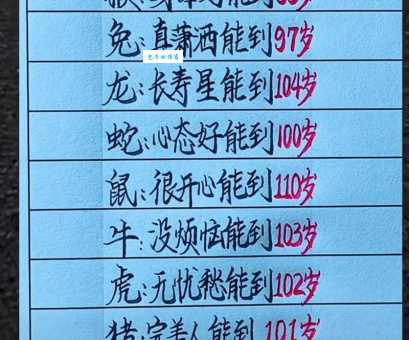 能到
兔:真潇洒能到97岁
龙:长寿星能到104岁
蛇:心态好能到100岁
鼠:很开心能到110岁
牛:没烦恼能到103岁
虎:无忧愁能到102岁
猪:完美人能到101岁